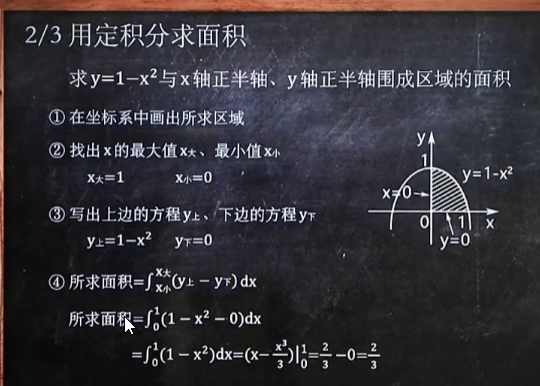 2/3 用定积分求面积
求y=1−x²与x轴正半轴、y轴正半轴围成区域的面积
① 在坐标系中画出所求区域
② 找出x的最大值x大、最小值x小
x大=1 x小=0
③ 写出上边的方程y上、下边的方程y下
y上=1−x² y下=0
④ 所求面积=∫x小^x大(y上 − y下) dx
所求面积=∫₀¹(1 − x² − 0)dx
=∫₀¹(1 − x²)dx=(x−x³/3)|₀¹=2/3 −0=2/3
y
1
y=1-x²
x=0
0
1
x
y=0